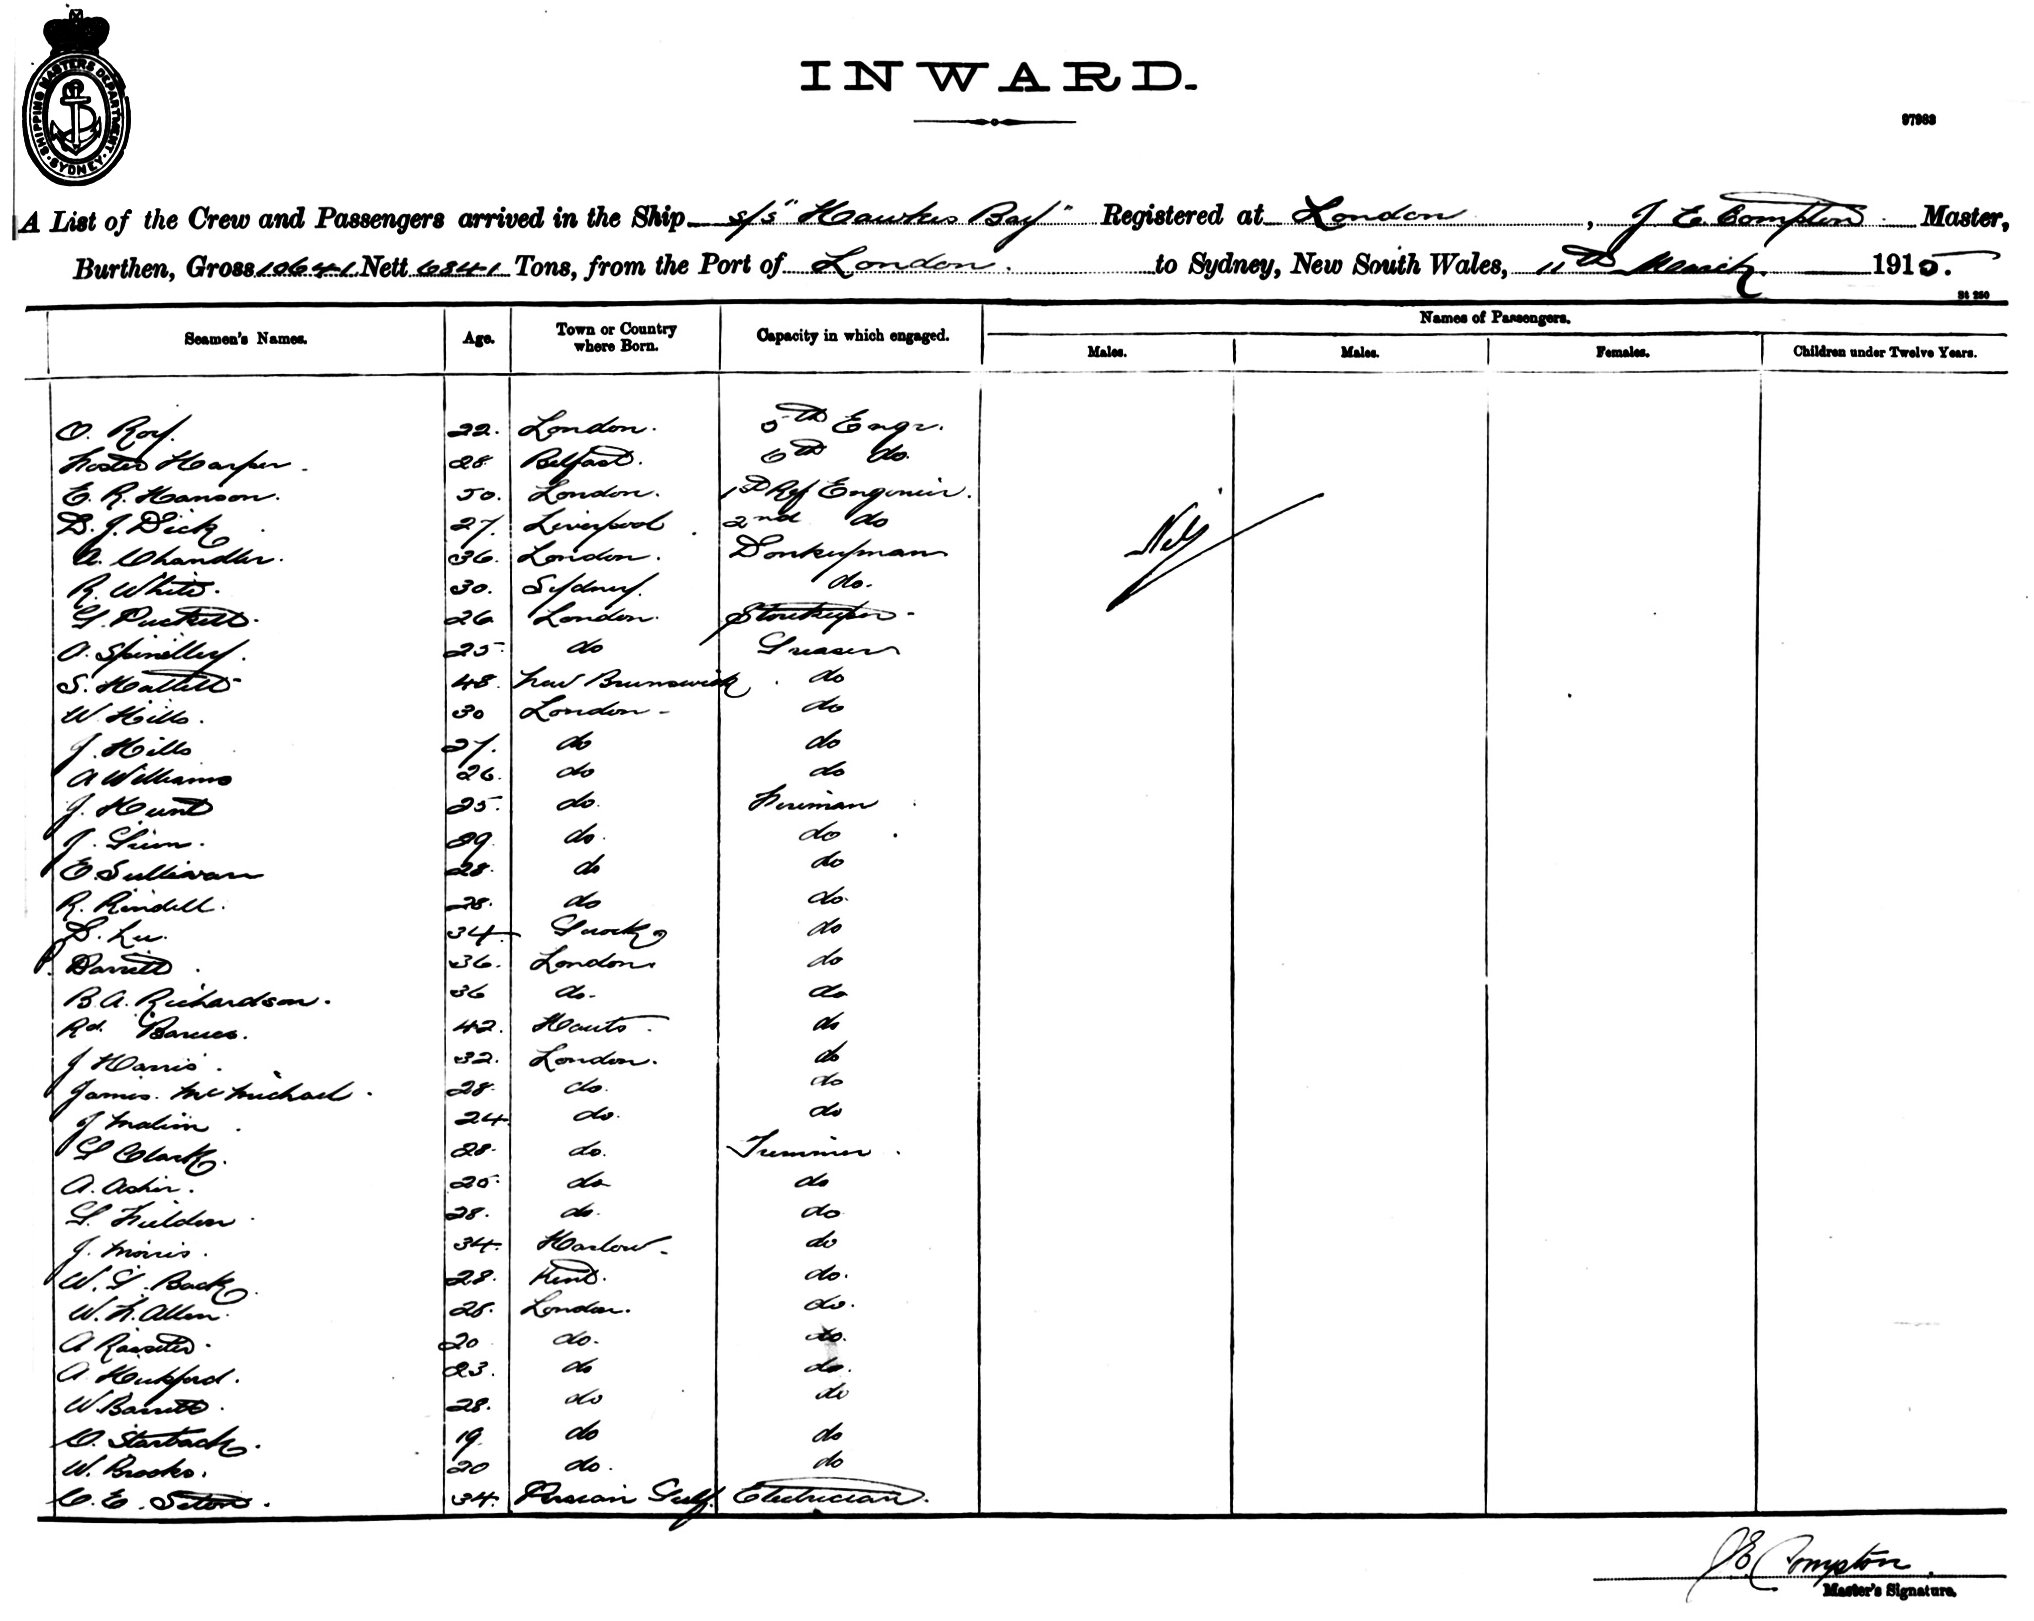 SHIPPING MASTERS DEPARTMENT
SYDNEY
INWARD.
97983
A List of the Crew and Passengers arrived in the Ship s/s "Hawkes Bay" Registered at London, J E Compton Master,
Burthen, Gross 10641 Nett 6841 Tons, from the Port of London. to Sydney, New South Wales, 11th March 1915.
St 250
Seamen's Names. Age. Town or Country where Born. Capacity in which engaged. Names of Passengers.
Males. Males. Females. Children under Twelve Years.
O. Roy. 22. London. 5th Engr.
Foster Harper. 28 Belfast. 6th do.
E. R. Hanson. 50. London. 1st Ref Engineer.
D. J. Dick 27. Liverpool 2nd do
A. Chandler. 36. London. Donkeyman
R. White. 30. Sydney. do.
G. Puckett. 26 London. Storekeeper
A. Spindley. 25 do Greaser
S. Hallett 48. New Brunswick. do
W. Hills. 30 London do
J. Hills 27. do do
A Williams 26. do do
J. Hunt 25. do. Fireman
J. 29. do. do
E. Sullivan 28. do do
R. Rindell. 28. do do.
D. Lee. 34. do
P. Barrett. 36. London. do
B. A. Richardson. 36 do. do
Rd. Barnes. 42. Hants. do
J Harris. 32. London. do
James. McMichael. 28. do. do
J Malim. 24. do. do
G Clark. 28. do. Trimmer.
A. Asher. 25 do do
G. Fielden 28. do. do
J. Morris. 34. Harlow. do
W. G. Back. 28. Kent. do.
W. F. Allen. 28. London. do.
A 20 do. do.
A. Huckford. 23. do do.
W. Barrett. 28. do do
C. Starback. 19. do do
W. Brooks. 20 do. do
C. E. Seton. 34. Persian Gulf. Electrician.
Nil
J E Compton
Master's Signature.